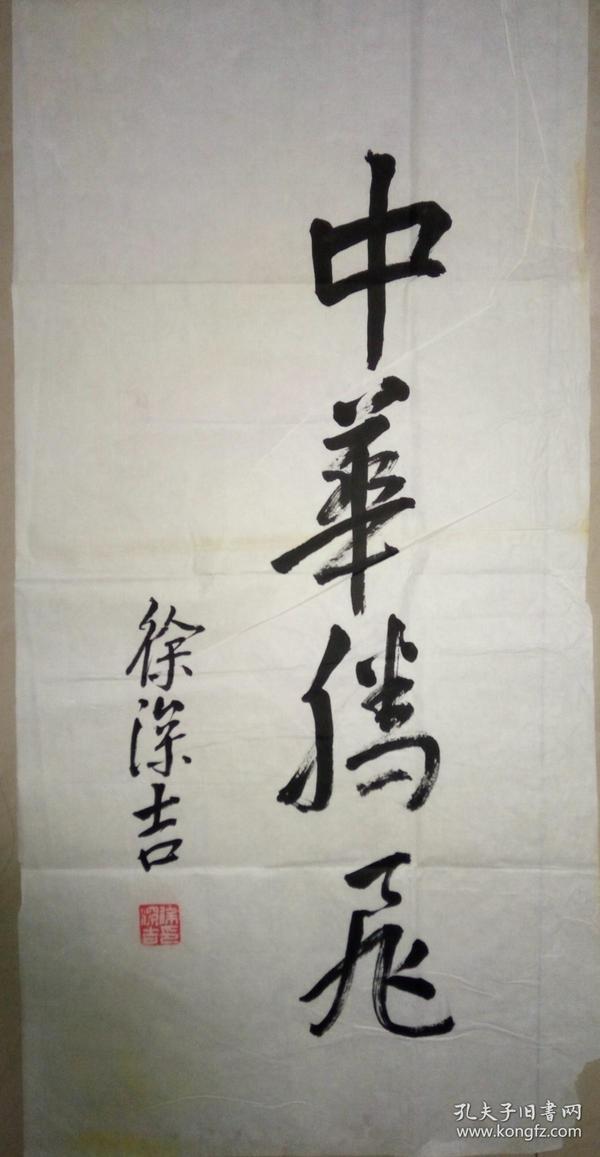 中華騰飛
徐深吉
孔夫子旧书网
www.kongfz.com